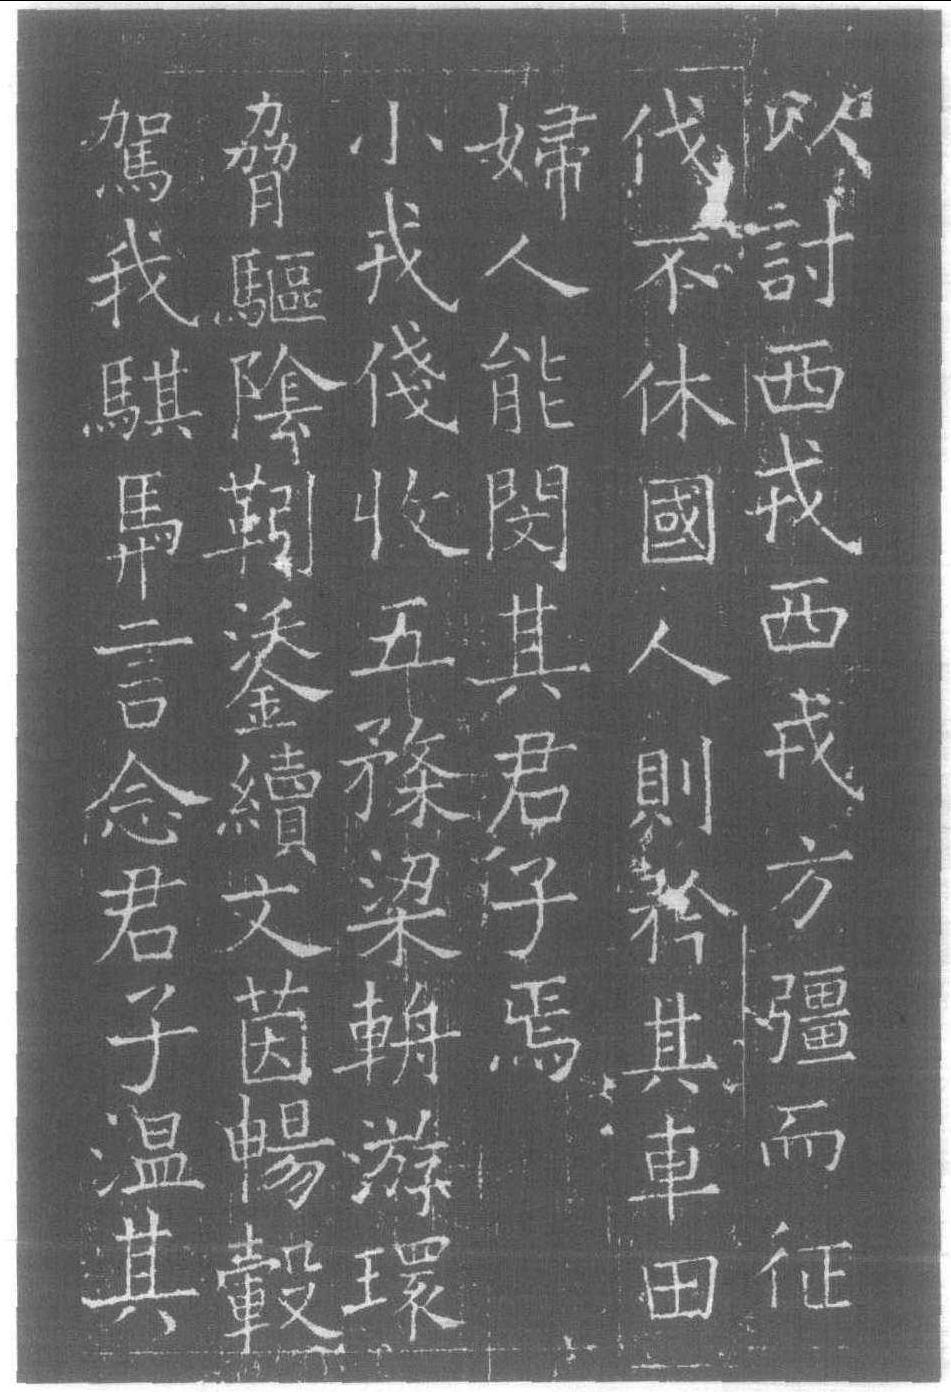 以討西戎西戎方彊而征
伐不休國人則矜其車田
婦人能閔其君子焉
小戎俴收五楘梁輈游環
脅驅陰靷鋈續文茵暢轂
駕我騏馵言念君子温其